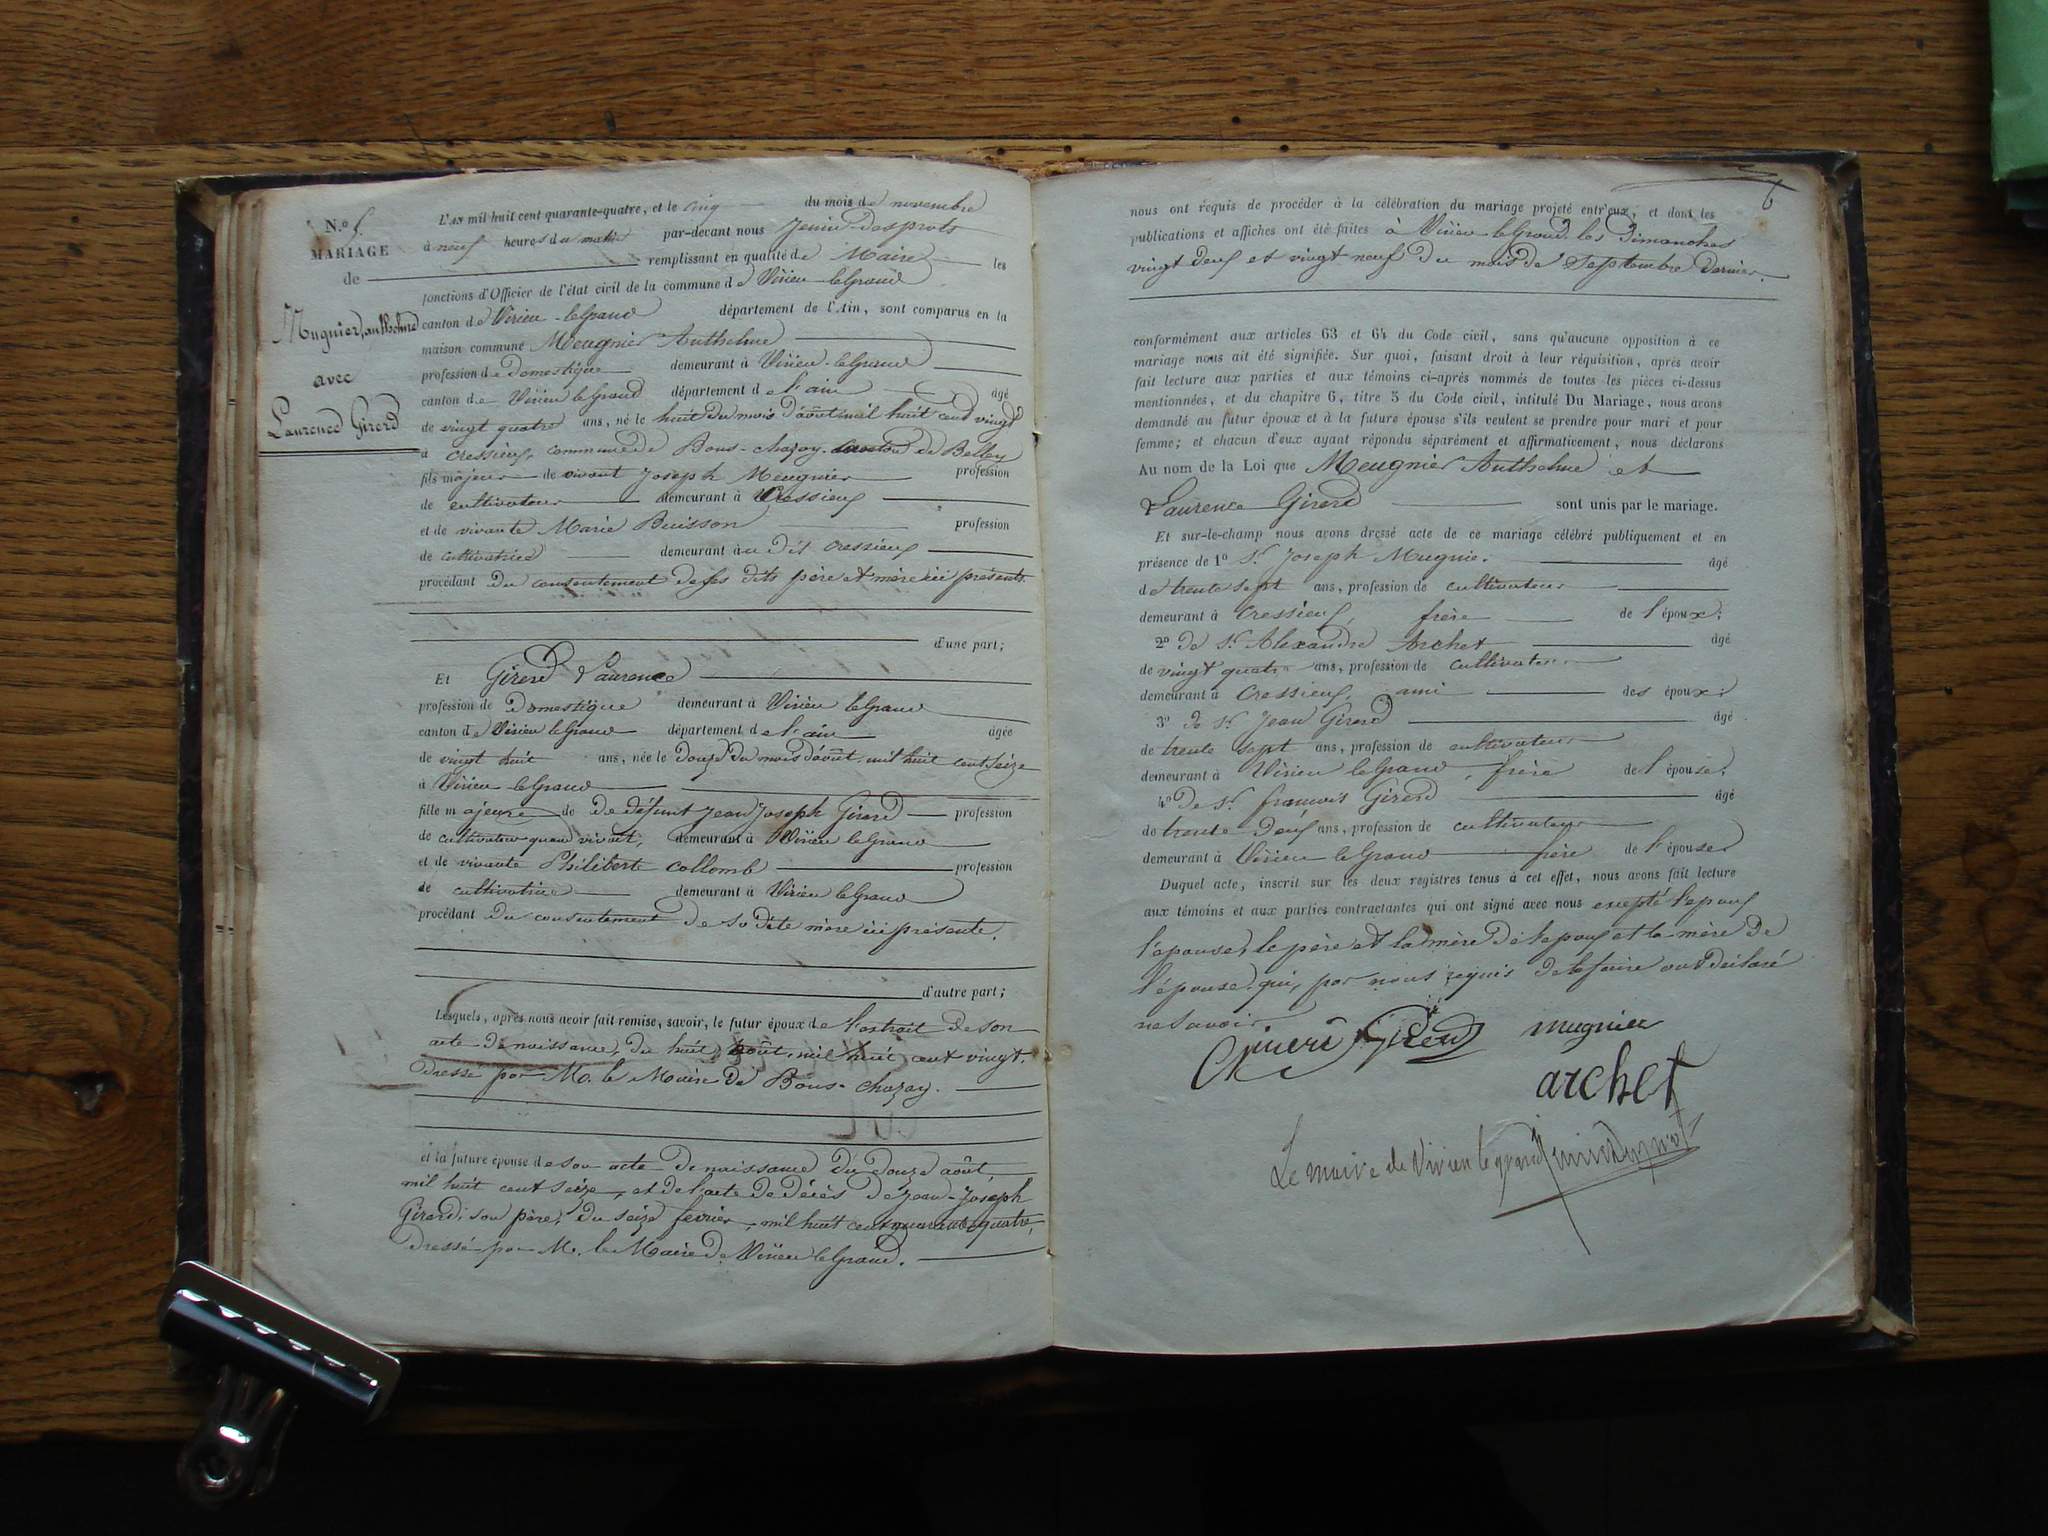 N.o 5.
MARIAGE
de
Mugnier, anthelme
avec
Laurence Girerd
L'AN mil huit cent quarante-quatre, et le cinq du mois de novembre
à neuf heures du matin par-devant nous Jenin Desprots
remplissant en qualité de Maire les
fonctions d'Officier de l'état civil de la commune de Virieu-le-Grand
canton de Virieu-le-Grand département de l'Ain, sont comparus en la
maison commune Meugnier Anthelme
profession de Domestique demeurant à Virieu-le-Grand
canton de Virieu le Grand département de l'ain âgé
de vingt quatre ans, né le huit du mois d'août mil huit cent vingt
à cressieux, commune de Bons-chazay canton de Belley
fils majeur de vivant Joseph Meugnier profession
de cultivateur demeurant à Cressieux
et de vivante Marie Buisson profession
de cultivatrice demeurant à u dit cressieux
procédant du consentement de ses dits père et mère ici présents.
d'une part;
Et Girerd Laurence
profession de Domestique demeurant à Virieu le Grand
canton de Virieu le Grand département de l'ain âgée
de vingt huit ans, née le Douze du mois d'août mil huit cent seize
à Virieu-le-Grand
fille majeure de de défunt Jean Joseph Girerd profession
de cultivateur quand vivait, demeurant à Virieu le Grand
et de vivante Philiberte Collomb profession
de cultivatrice demeurant à Virieu le Grand
procédant du consentement de sa dite mère ici présente.
d'autre part;
Lesquels, après nous avoir fait remise, savoir, le futur époux de l'extrait de son
acte de naissance, du huit août, mil huit cent vingt,
Dressé par M. le Maire de Bons-chazay.
et la future épouse de son acte de naissance du douze août
mil huit cent seize, et de l'acte de décès de Jean-Joseph
Girerd, son père, du seize février, mil huit cent quarante quatre,
Dressé par M. le Maire de Virieu le Grand.
6
nous ont requis de procéder à la célébration du mariage projeté entr'eux, et dont les
publications et affiches ont été faites à Virieu le Grand les Dimanches
vingt deux et vingt neuf du mois de Septembre Dernier.
conformément aux articles 63 et 64 du Code civil, sans qu'aucune opposition à ce
mariage nous ait été signifiée. Sur quoi, faisant droit à leur réquisition, après avoir
fait lecture aux parties et aux témoins ci-après nommés de toutes les pièces ci-dessus
mentionnées, et du chapitre 6, titre 5 du Code civil, intitulé Du Mariage, nous avons
demandé au futur époux et à la future épouse s'ils veulent se prendre pour mari et pour
femme; et chacun d'eux ayant répondu séparément et affirmativement, nous déclarons
Au nom de la Loi que Meugnier Anthelme et
Laurence Girerd sont unis par le mariage.
Et sur-le-champ nous avons dressé acte de ce mariage célébré publiquement et en
présence de 1o Sr. Joseph Mugnier. âgé
de trente sept ans, profession de cultivateur
demeurant à Cressieux, frère de l'époux;
2o de Sr. Alexandre Archet âgé
de vingt quatre ans, profession de cultivateur
demeurant à Cressieux, ami des époux;
3o de Sr. Jean Girerd âgé
de trente sept ans, profession de cultivateur
demeurant à Virieu le Grand, frère de l'épouse;
4o de Sr. françois Girerd âgé
de trente deux ans, profession de cultivateur
demeurant à Virieu le Grand frère de l'épouse
Duquel acte, inscrit sur les deux registres tenus à cet effet, nous avons fait lecture
aux témoins et aux parties contractantes qui ont signé avec nous excepté l'époux
l'épouse, le père et la mère de l'époux et la mère de
l'épouse, qui, par nous requis de le faire ont déclaré
ne savoir.
Girerd mugnier
archet
Le maire de Virieu le grand